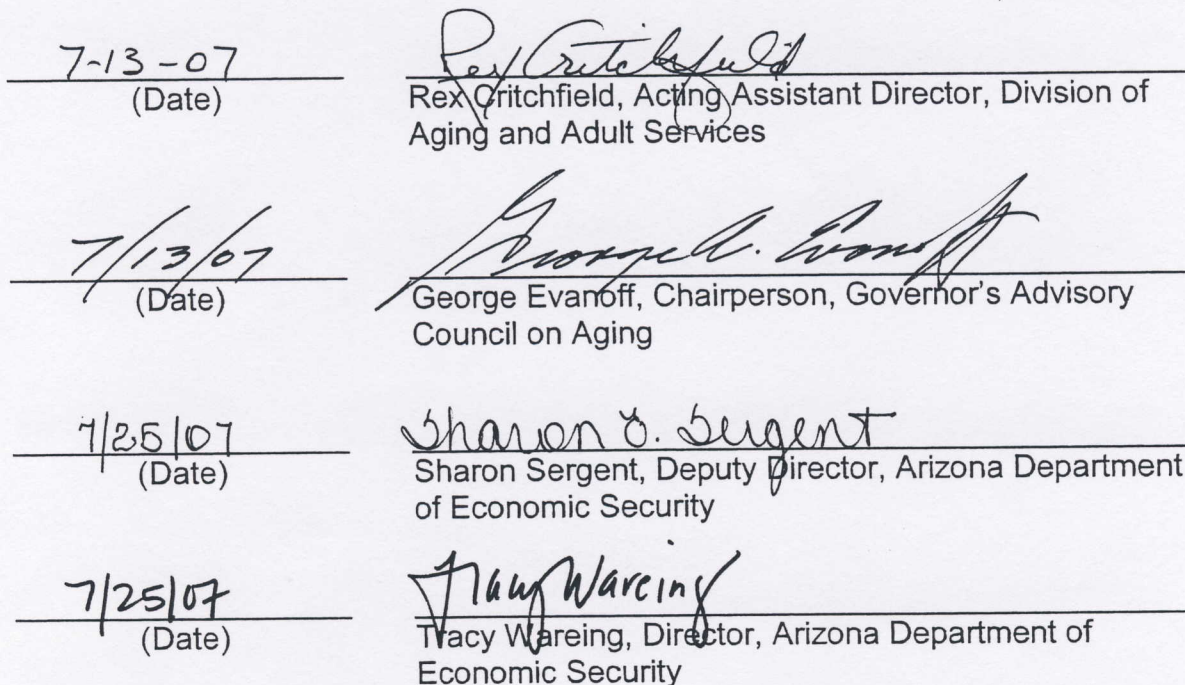 7-13-07 Rex Critchfield
(Date) Rex Critchfield, Acting Assistant Director, Division of
Aging and Adult Services
7/13/07 George A. Evanoff
(Date) George Evanoff, Chairperson, Governor's Advisory
Council on Aging
7/25/07 Sharon E. Sergent
(Date) Sharon Sergent, Deputy Director, Arizona Department
of Economic Security
7/25/07 Tracy Wareing
(Date) Tracy Wareing, Director, Arizona Department of
Economic Security